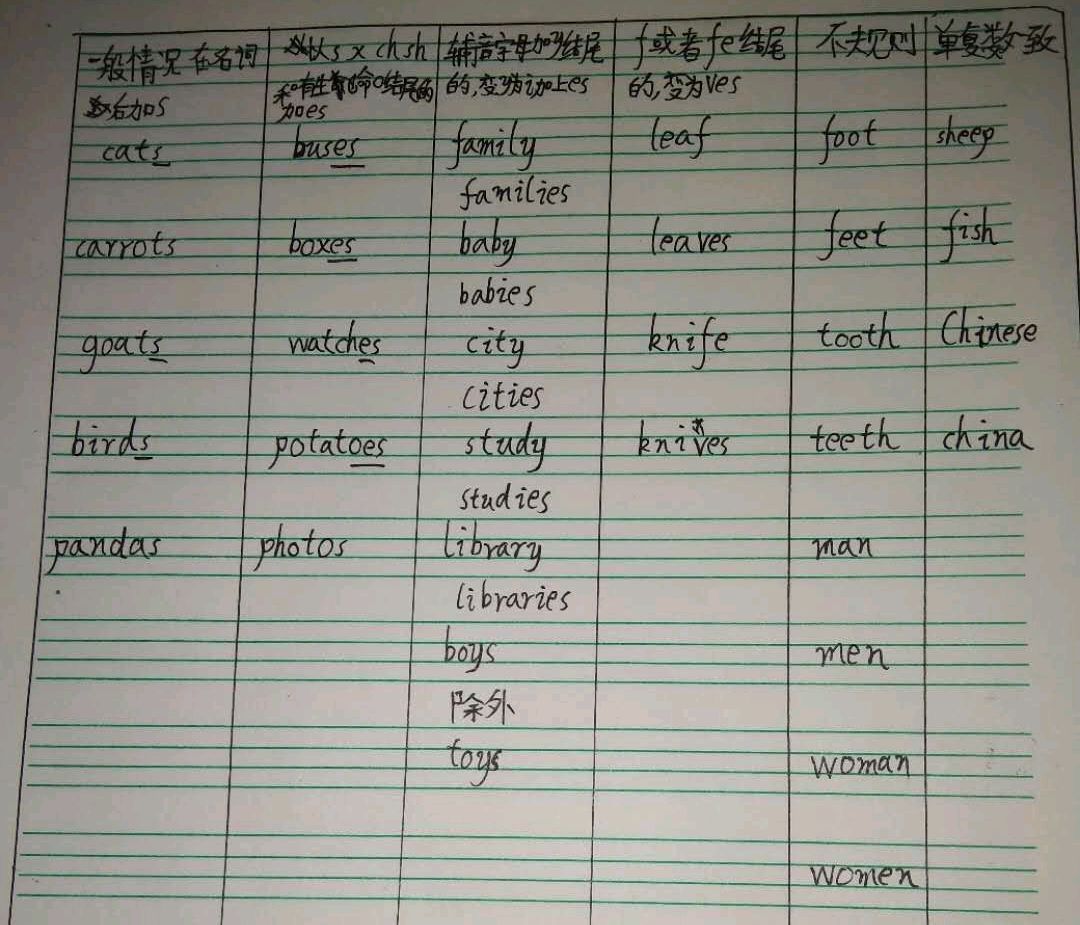 一般情况 在名词 以s x ch sh 辅音字母加y结尾 f或者fe结尾 不规则 单复数一致
后加s 和有生命o结尾的 的,变y为i加上es 的,变为ves
加es
cats buses family leaf foot sheep
families
carrots boxes baby leaves feet fish
babies
goats watches city knife tooth Chinese
cities
birds potatoes study knives teeth china
studies
pandas photos library man
libraries
boys men
除外
toys woman
women